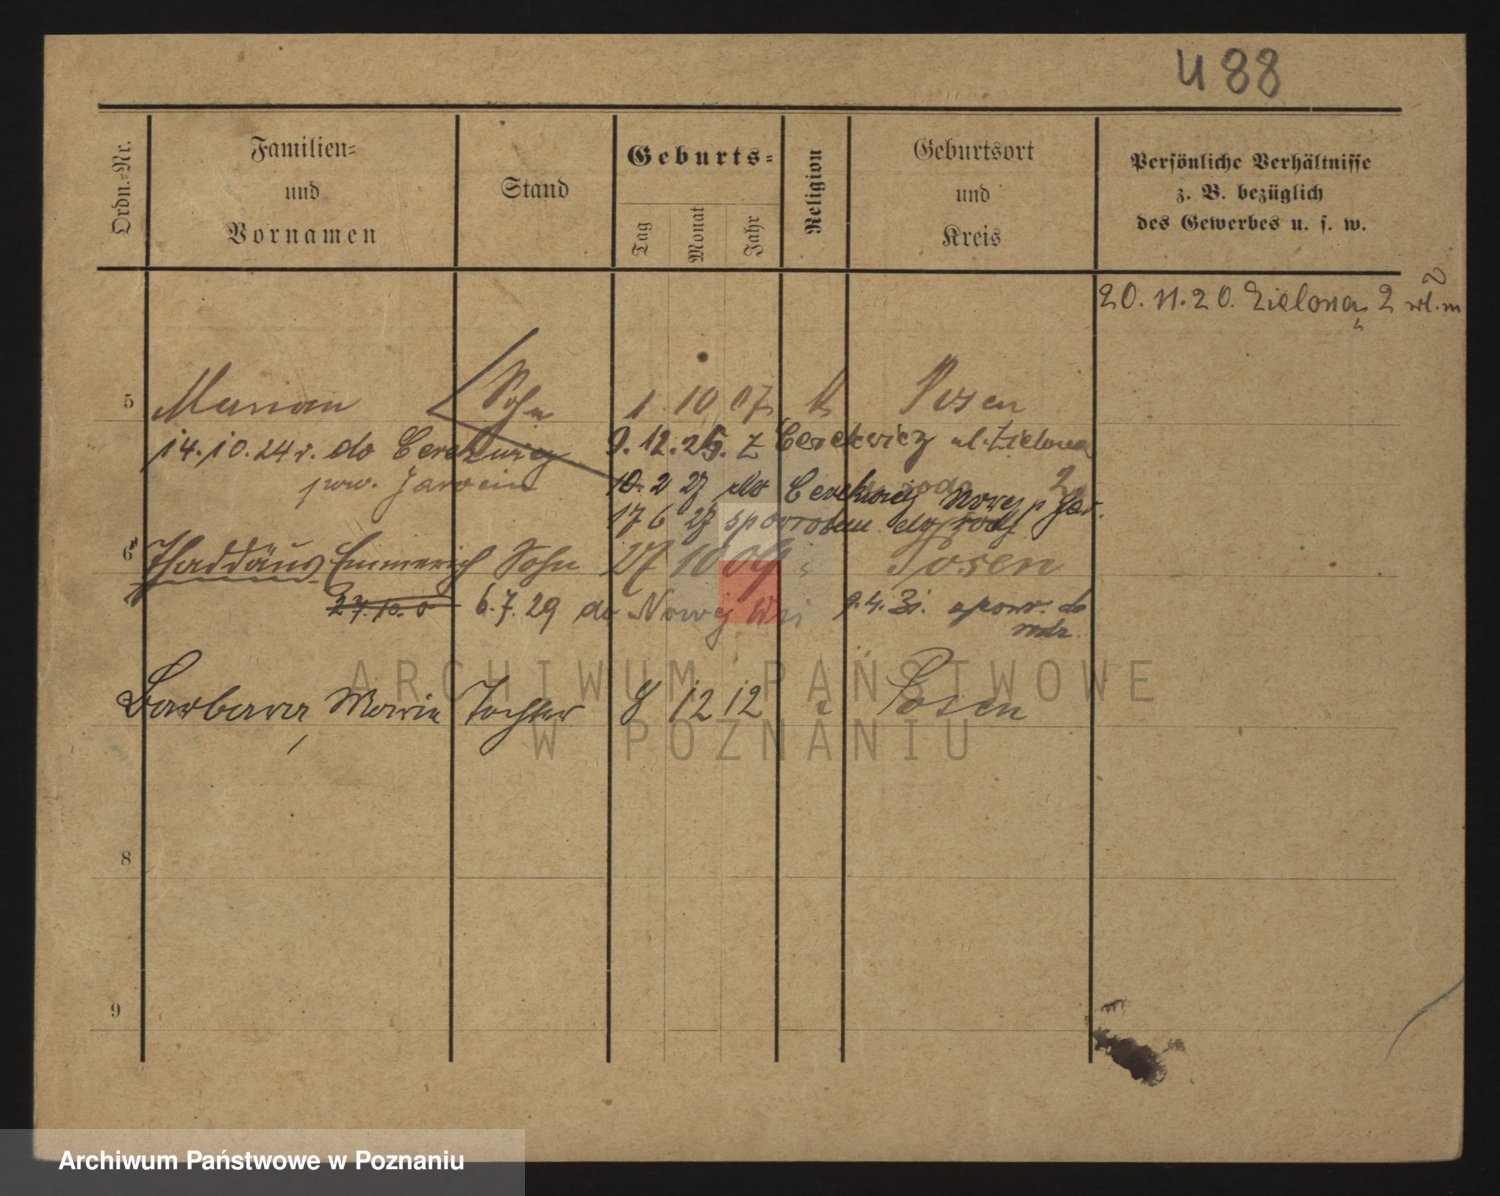 488
Ordn.-Nr.
Familien-
und
Vornamen
Stand
Geburts-
Tag
Monat
Jahr
Religion
Geburtsort
und
Kreis
Persönliche Verhältnisse
z. B. bezüglich
des Gewerbes u. s. w.
20.11.20. Zielona 2
5 Marian Sohn 1 10 07 k Posen
14.10.24 r. do Cerekwicy 9.12.25. z Cerekwicy ul. Zielona
pow. Jarocin 10. 2 27 do Cerekwicy Nowej p Jar.
17 6 27 spowrotem do rodz
6 Thaddäus Emmerich Sohn 27 10 09 Posen
27.10.0 6.7.29 do Nowej Wsi 9.4.31. spowr. do
rodz.
Barbara Maria Tochter 8 12 12 Posen
8
9
ARCHIWUM PAŃSTWOWE
W POZNANIU
Archiwum Państwowe w Poznaniu